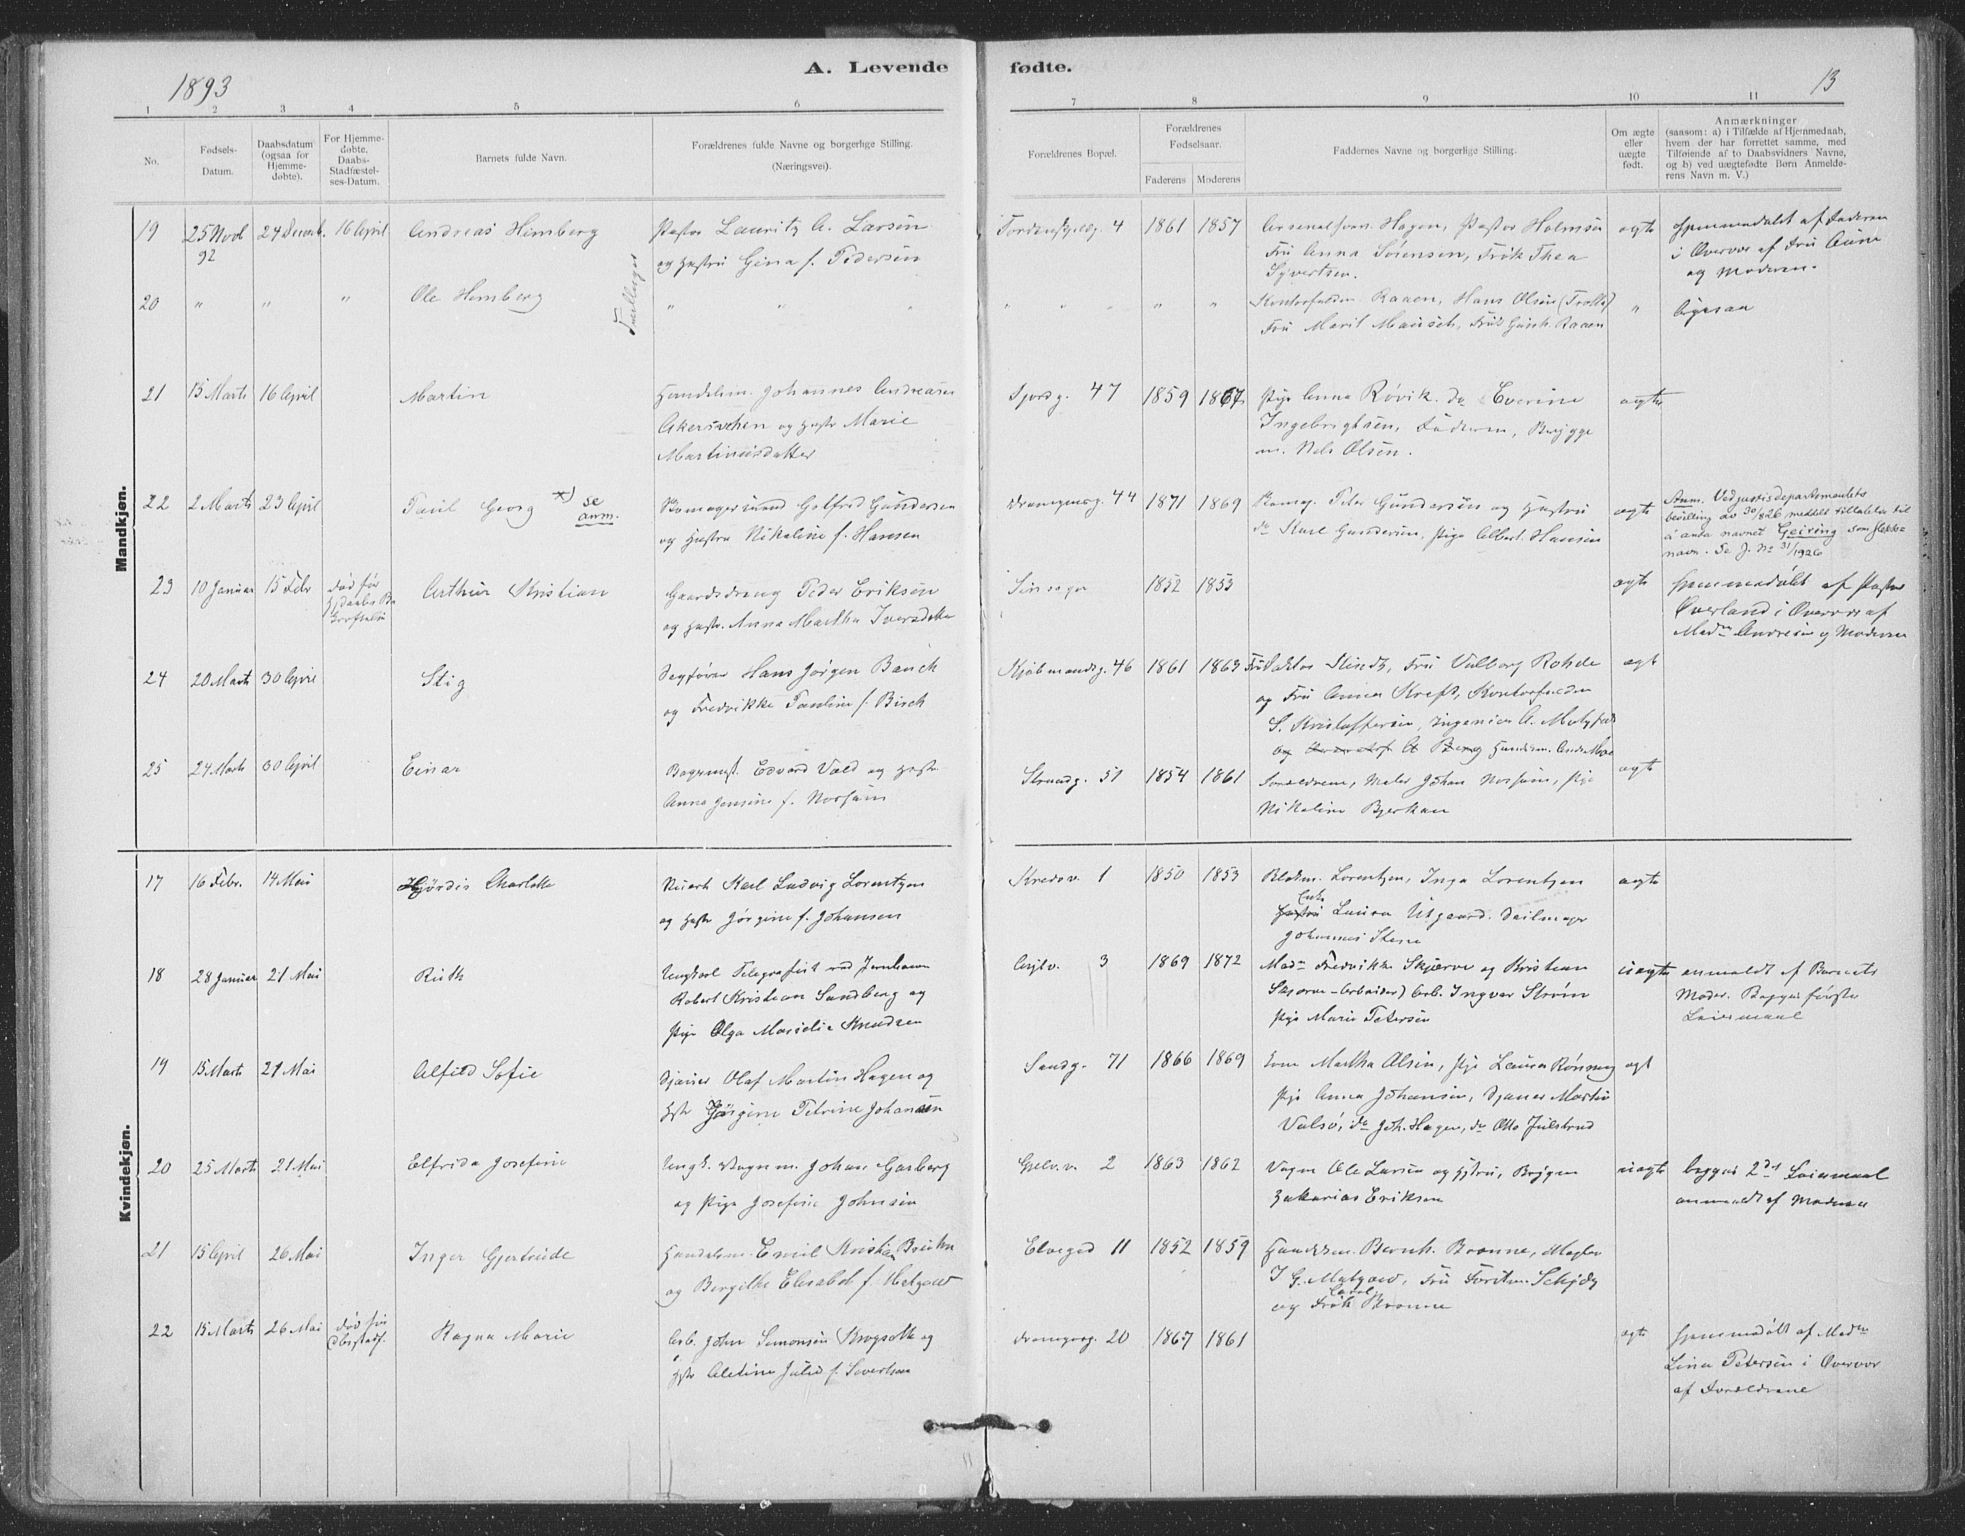 1893
A. Levende fødte.
13
1 2 3 4 5 6 7 8 9 10 11
No.
Fødsels-Datum.
Daabsdatum (ogsaa for Hjemme-døbte).
For Hjemme-døbte, Daabs-Stadfæstel-ses-Datum.
Barnets fulde Navn.
Forældrenes fulde Navne og borgerlige Stilling.
(Næringsvei).
Forældrenes Bopæl.
Forældrenes Fødselsaar.
Faderens Moderens
Faddernes Navne og borgerlige Stilling.
Om ægte eller uægte født.
Anmærkninger
(saasom: a) i Tilfælde af Hjemmedaab,
hvem der har forrettet samme, med
Tilføiende af to Daabsvidners Navne,
og b) ved uægtefødte Børn Anmelde-
rens Navn m. V.)
Mandkjøn.
19 25 Novb 92 24 Decemb. 16 April Andreas Himberg
Pastor Lauritz A. Larsen
og Hustru Gina f. Pedersen
Tordenskjoldg. 4 1861 1857
Hagen, Pastor Holmsen
Fru Anna Sørensen, Frøk Thea
Syvertsen.
ægte
Hjemmedøbt af Faderen
i Overvær af Fru Aune
og Moderen.
20 " " " Ole Himberg Tvillinger " " "
" " " " "
Raaen, Hans Olsen (Trolla)
Fru Marit Raaen
" Ligesaa
21 15 Marts 16 April Martin
Handelsm. Johannes Andreasen
og Hustr Marie
Martinusdatter
Fjordg. 47 1859 1867
Pige Anna Røvik. do Everine
Ingebrigtsen, Faderen, Brygge
m. Nels Olsen.
ægte
22 2 Marts 23 April Paul Georg *) se anm.
Skomagersvend Gotfred Gundersen
og Hustru Nikoline f. Hansen
Dronningensg. 44 1871 1869
Skomag. Peter Gundersen og Hustru
do Karl Gundersen, Pige Albert. Hansen
ægte
Anm. Ved justisdepartementets
bevilling av 30/8 26 meddelt tillatelse til
å anta navnet Geiring som slekts-
navn. Se J. No 31/1926
23 10 Januar 15 Febr død før Daabs Be kræftelse Arthur Kristian
Gaardsdreng Peder Eriksen
og Hustr. Anna Martha Iversdatter
1852 1853
ægte
Hjemmedøbt af Pastor
Øverland i Overvær af
Madm Andresen og Moderen
24 20 Marts 30 April Stig
Hans Jørgen Bauck
og Fredrikke Pauline f. Birch
Kjøbmandsg. 46 1861 1863
Fru Valborg Rohde
og Fru Anna Kreft, Kontorfuldm
S. Kristoffersen, Ingeniør A. Metzger
ægt
25 24 Marts 30 April Einar
Bagermst. Edvard Vold og Hustr.
Anna Jensine f. Norheim
Strandg. 51 1854 1861
Forældrene, Maler Johan Norheim, Pige
Nikoline Bjerkan
ægte
Kvindekjøn.
17 16 Febr. 14 Mai Hjørdis Charlotte
Karl Ludvig Lorentzen
og Hustr Jørgine f. Johansen
1 1850 1853
Lorentzen, Inga Lorentzen
Enke Laura Utgaard. Seilmager
Johannes Stene
ægte
18 28 Januar 21 Mai Ruth
Ungkarl Telegrafist ved Jernbanen
Robert Kristian Sandberg og
Pige Olga Marselie Knudsen
3 1869 1872
Madm Fredrikke Skjerve og Kristian
Skjerve - Arbeider, Arb. Ingvar Strøm
Pige Marie Petersen
uægte
anmeldt af Barnets
Moder. Begges første
Leiermaal
19 15 Marts 21 Mai Alfild Sofie
Olaf Martin Hagen og
Hstr Jørgine Petrine Johansen
Sandg. 71 1866 1869
Martha Olsen, Pige Laura Rønning
Pige Anna Johansen, Martin
Valsø, do Joh. Hagen, do Otto Julstrud
ægt
20 25 Marts 21 Mai Elfrida Josefine
Ungk. Vognm. Johan Garberg
og Pige Josefine Johnsen
2 1863 1862
Vognm Ole Larsen og Hstru, Brygm
Zakarias Eriksen
uægte
begges 2det Leiermaal
anmeldt af Moderen
21 15 April 26 Mai Inger Gjertrude
Handelsm. Emil Kristian
og Bergitte Elisabet f. Matzow
Elvegad 11 1852 1859
Handelsm. Bernh. Brænne,
I G. Matzow, Fru
og Frøk Carol. Brænne
22 15 Marts 26 Mai død før Ragna Marie
Arb. John Simonsen og
Hstr Aletine Julie f. Sivertsen
Dronningsg. 20 1867 1861
ægte
Hjemmedøbt af Madm
Lina Petersen i Overvær
af Forældrene